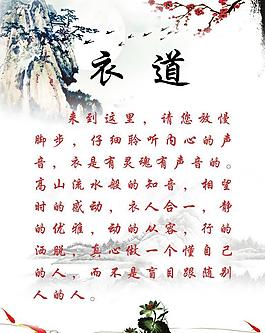 衣道
来到这里，请您放慢
脚步，仔细聆听内心的声
音，衣是有灵魂有声音的。
高山流水般的知音，相望
时的感动，衣人合一，静
的优雅，动的从容，行的
洒脱，真心做一个懂自己
的人，而不是盲目跟随别
人的人。